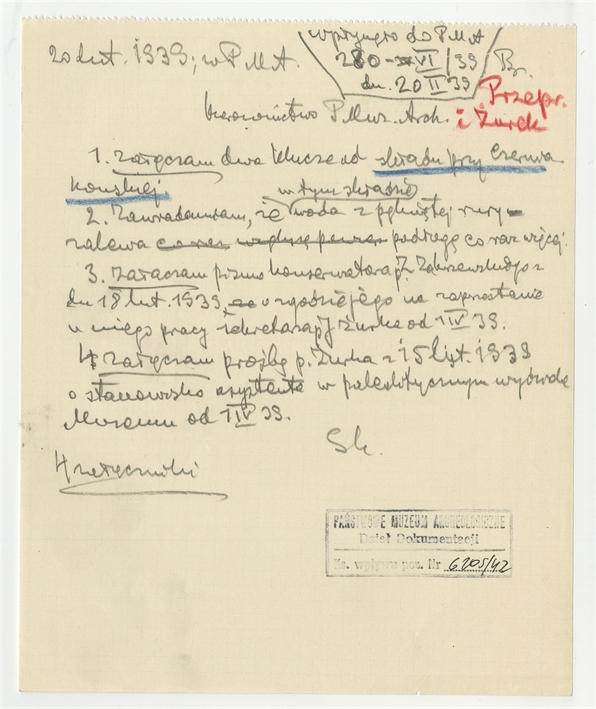 wpłynęło do PMA
20 lut. 1939; w P M A.
280 - VI/39
dn. 20 II 39
Przepr.
i Żurek
Kierownictwo P. Muz. Arch.
1. Załączam dwa klucze od składu przy Czerwo
w tym składzie
2. Zawiadamiam, że woda z pękniętej rury
zalewa podłogę coraz więcej.
3. Załączam pismo konserwatora J. Zakrzewskiego z
dn 18 lut. 1939, o zgodzie jego na zaprzestanie
u niego pracy sekretarza J Żurka od 1 IV 39.
4 Załączam prośbę p. Żurka z 15 lut. 1939
o stanowisko asystenta w paleolitycznym wydziale
Muzeum od 1 IV 39.
Sk.
4 załączniki
PAŃSTWOWE MUZEUM ARCHEOLOGICZNE
Dział Dokumentacji
Ks. wpływu poz. Nr 6205/42